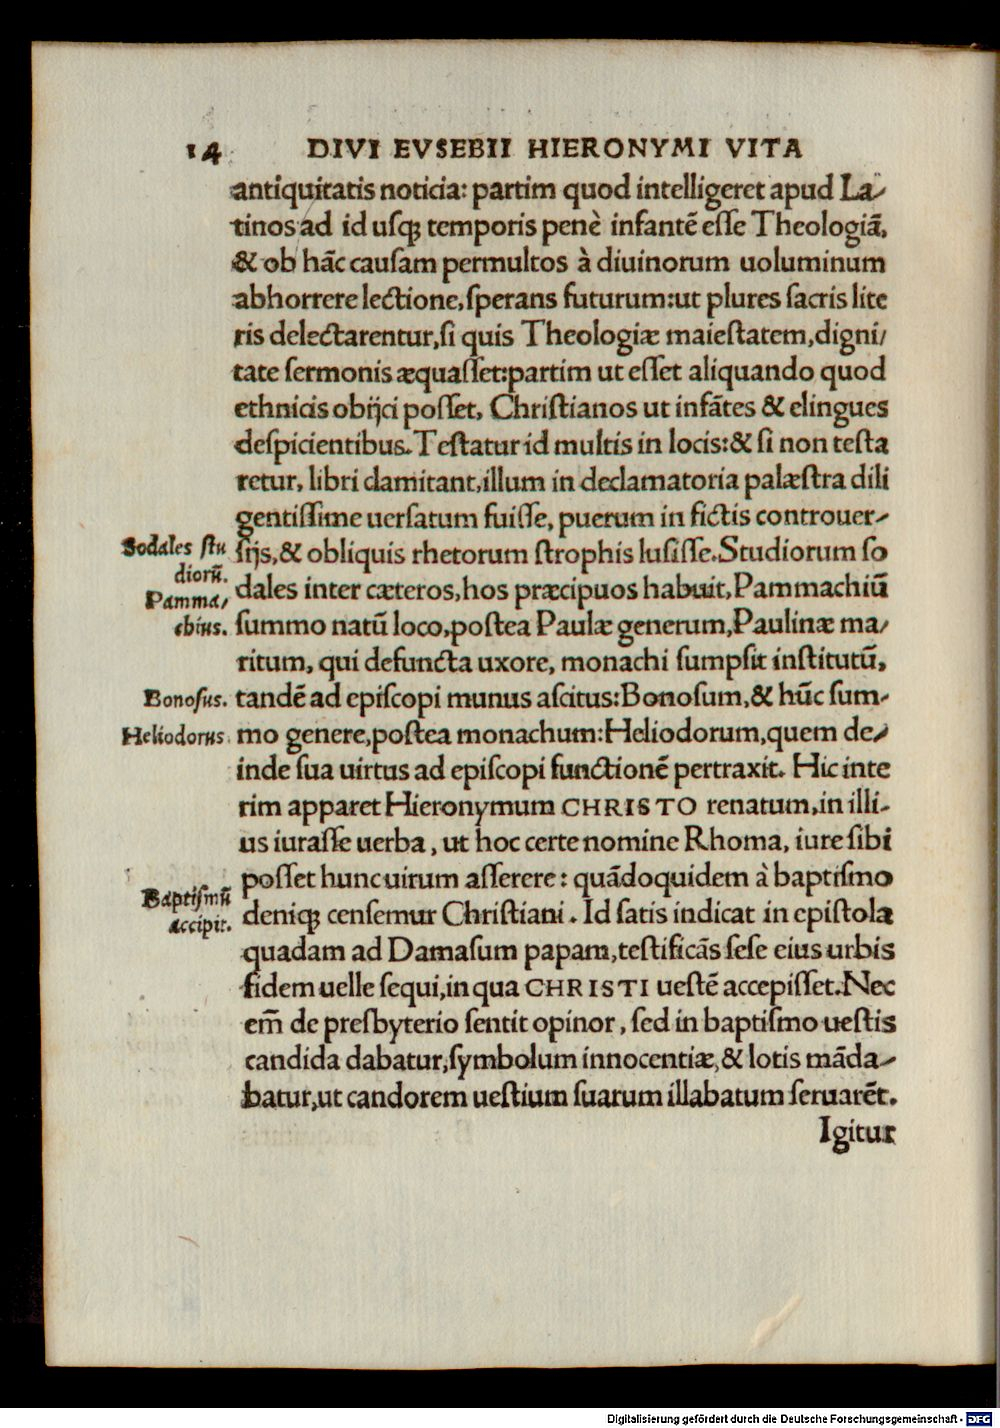 14 DIVI EVSEBII HIERONYMI VITA
antiquitatis noticia: partim quod intelligeret apud La-
tinos ad id uſqꝫ temporis penè infantē eſſe Theologiā,
& ob hāc cauſam permultos à diuinorum uoluminum
abhorrere lectione, ſperans futurum: ut plures ſacris lite
ris delectarentur, ſi quis Theologiæ maieſtatem, digni/
tate ſermonis æquaſſet: partim ut eſſet aliquando quod
ethnicis obijci poſſet, Chriſtianos ut infātes & elingues
deſpicientibus. Teſtatur id multis in locis: & ſi non teſta
retur, libri clamitant, illum in declamatoria palæſtra dili
gentiſſime uerſatum fuiſſe, puerum in fictis controuer-
ſijs, & obliquis rhetorum ſtrophis luſiſſe. Studiorum ſo
dales inter cæteros, hos præcipuos habuit, Pammachiū
ſummo natū loco, poſtea Paulæ generum, Paulinæ ma/
ritum, qui defuncta uxore, monachi ſumpſit inſtitutū,
tandē ad epiſcopi munus aſcitus: Bonoſum, & hūc ſum-
mo genere, poſtea monachum: Heliodorum, quem de-
inde ſua uirtus ad epiſcopi functionē pertraxit. Hic inte
rim apparet Hieronymum CHRISTO renatum, in illi-
us iuraſſe uerba, ut hoc certe nomine Rhoma, iure ſibi
poſſet hunc uirum aſſerere: quādoquidem à baptiſmo
deniqꝫ cenſemur Chriſtiani. Id ſatis indicat in epiſtola
quadam ad Damaſum papam, teſtificās ſeſe eius urbis
fidem uelle ſequi, in qua CHRISTI ueſtē accepiſſet. Nec
em̄ de preſbyterio ſentit opinor, ſed in baptiſmo ueſtis
candida dabatur, ſymbolum innocentiæ, & lotis māda-
batur, ut candorem ueſtium ſuarum illabatum ſeruarēt.
Igitur
Sodales ſtu
diorū.
Pamma,
chius.
Bonoſus.
Heliodorus.
Baptiſmū
accipit.
Digitalisierung gefördert durch die Deutsche Forschungsgemeinschaft - DFG